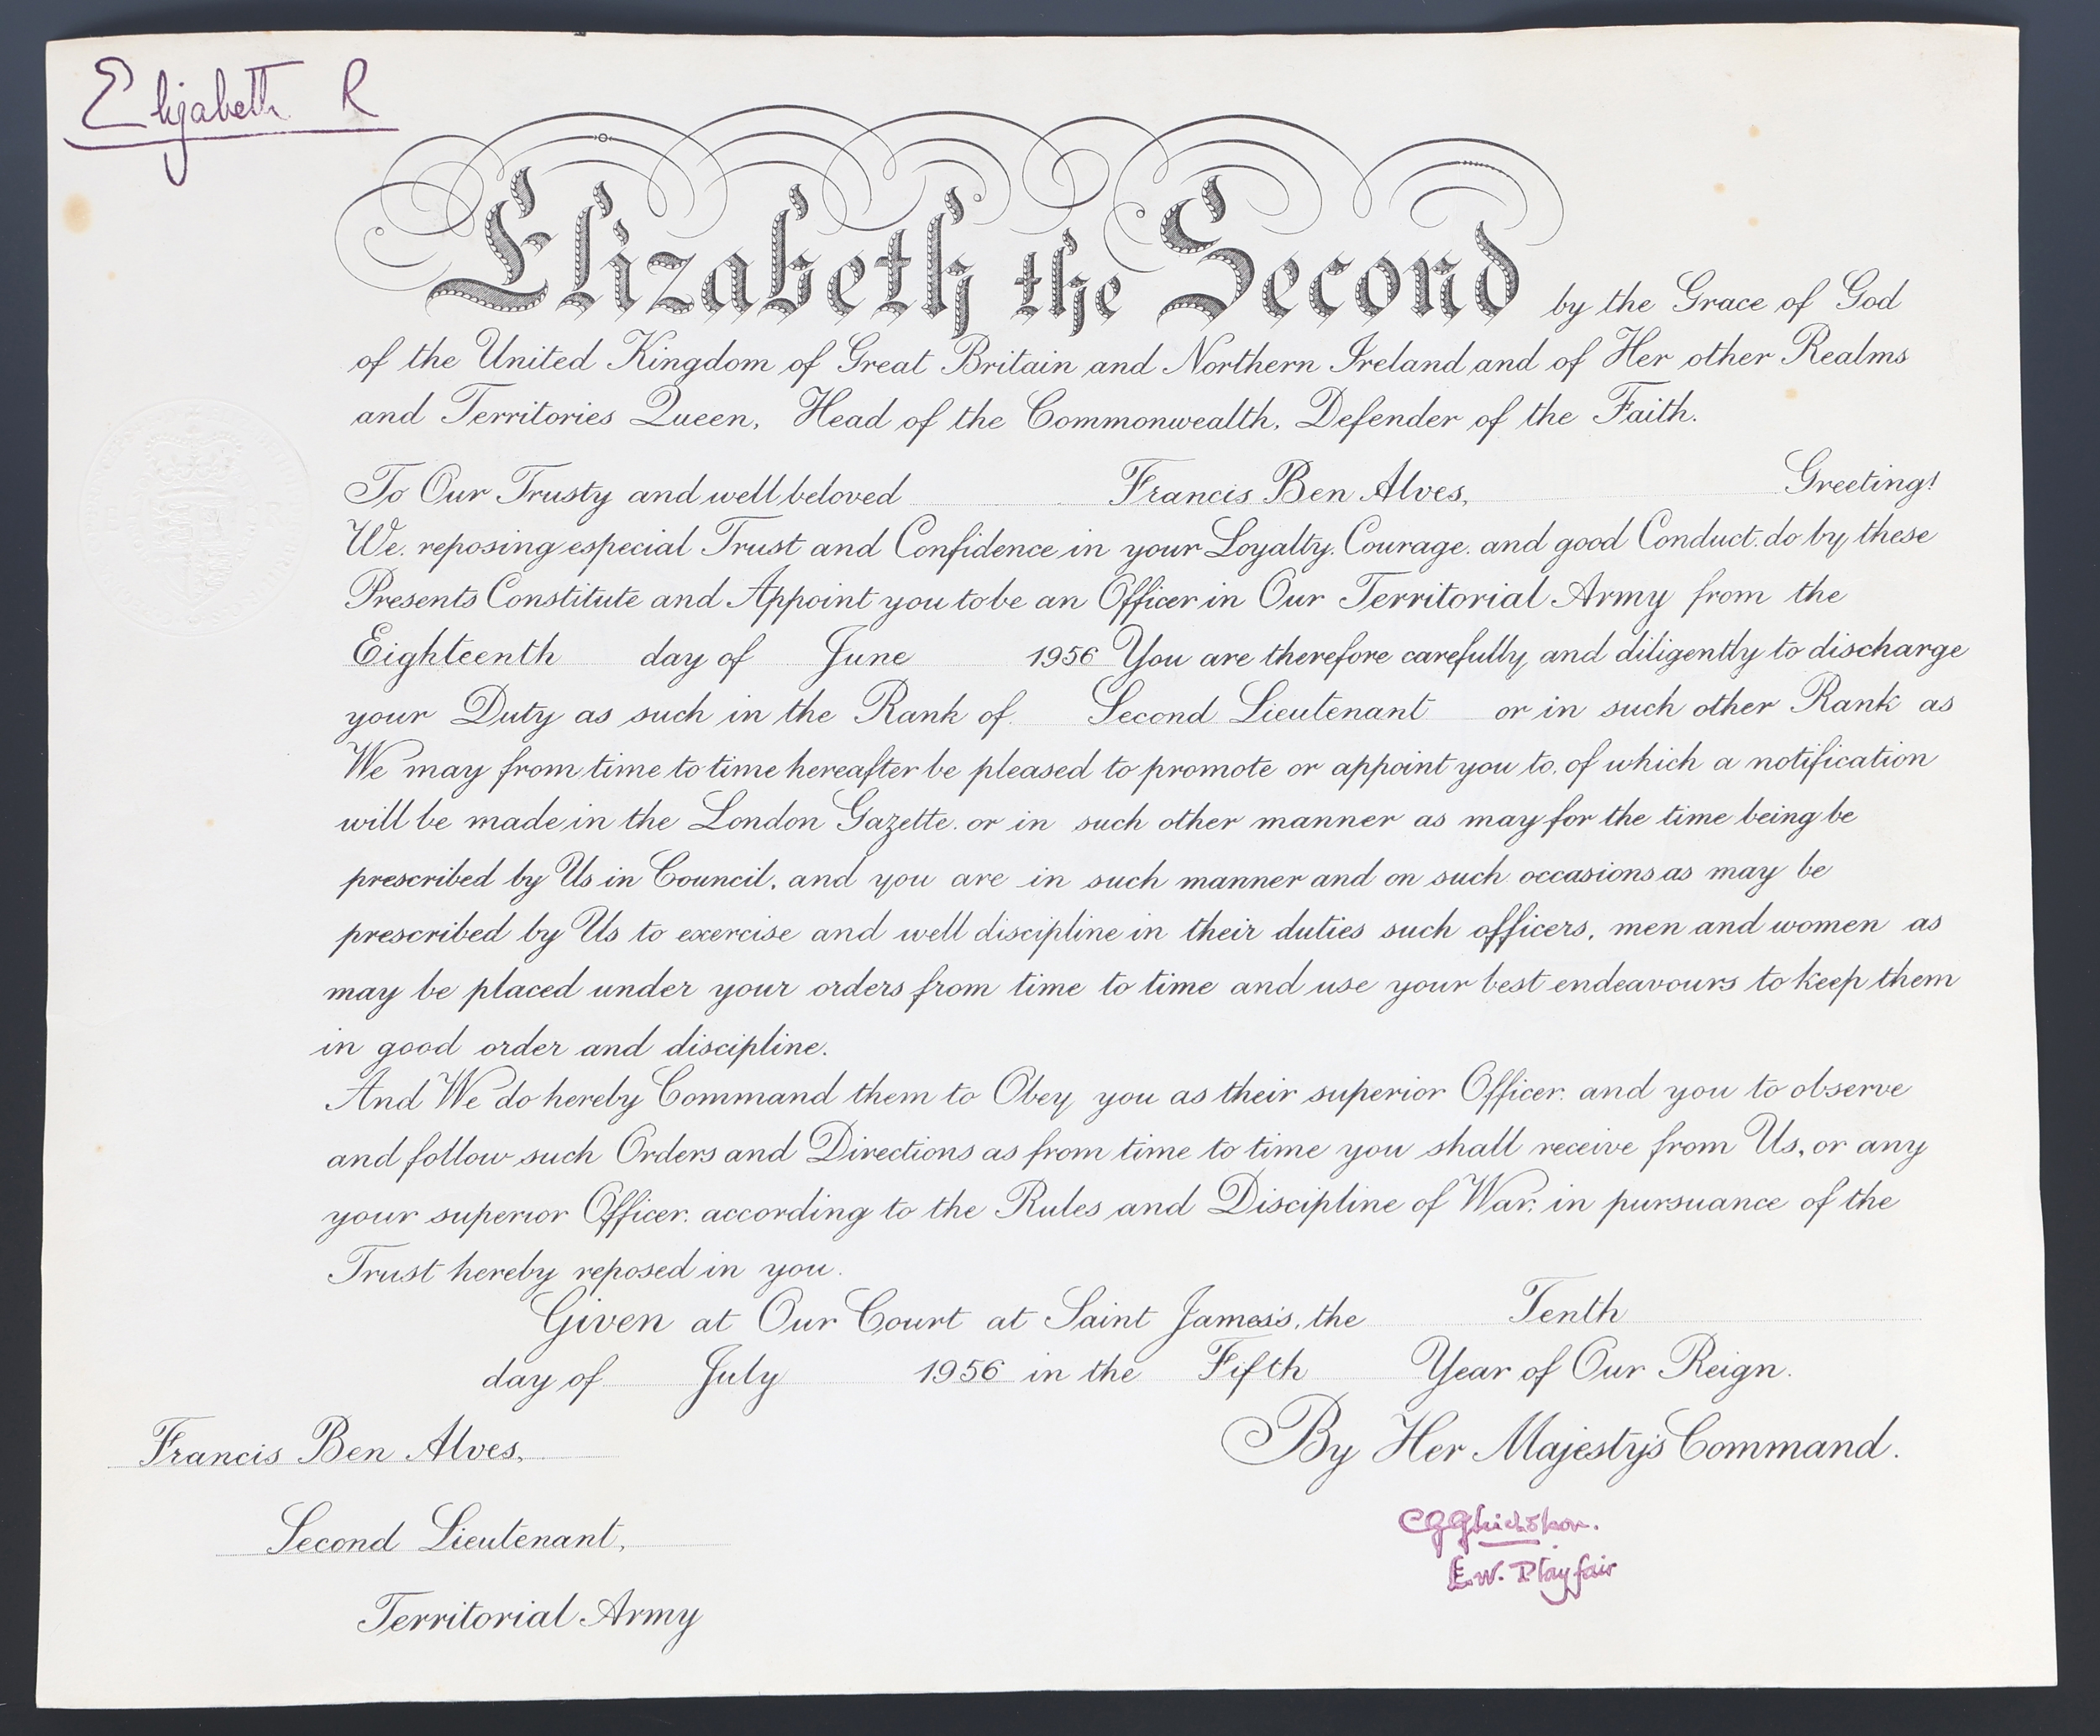 Elizabeth R
Elizabeth the Second by the Grace of God
of the United Kingdom of Great Britain and Northern Ireland and of Her other Realms
and Territories Queen, Head of the Commonwealth, Defender of the Faith.
To Our Trusty and well beloved Francis Ben Alves, Greeting!
We, reposing especial Trust and Confidence in your Loyalty, Courage, and good Conduct, do by these
Presents Constitute and Appoint you to be an Officer in Our Territorial Army from the
Eighteenth day of June 1956 You are therefore carefully and diligently to discharge
your Duty as such in the Rank of Second Lieutenant or in such other Rank as
We may from time to time hereafter be pleased to promote or appoint you to, of which a notification
will be made in the London Gazette, or in such other manner as may for the time being be
prescribed by Us in Council, and you are in such manner and on such occasions as may be
prescribed by Us to exercise and well discipline in their duties such officers, men and women as
may be placed under your orders from time to time and use your best endeavours to keep them
in good order and discipline.
And We do hereby Command them to Obey you as their superior Officer, and you to observe
and follow such Orders and Directions as from time to time you shall receive from Us, or any
your superior Officer, according to the Rules and Discipline of War, in pursuance of the
Trust hereby reposed in you.
Given at Our Court at Saint James's, the Tenth
day of July 1956 in the Fifth Year of Our Reign.
By Her Majesty's Command.
Francis Ben Alves,
Second Lieutenant,
Territorial Army
E.W. Playfair